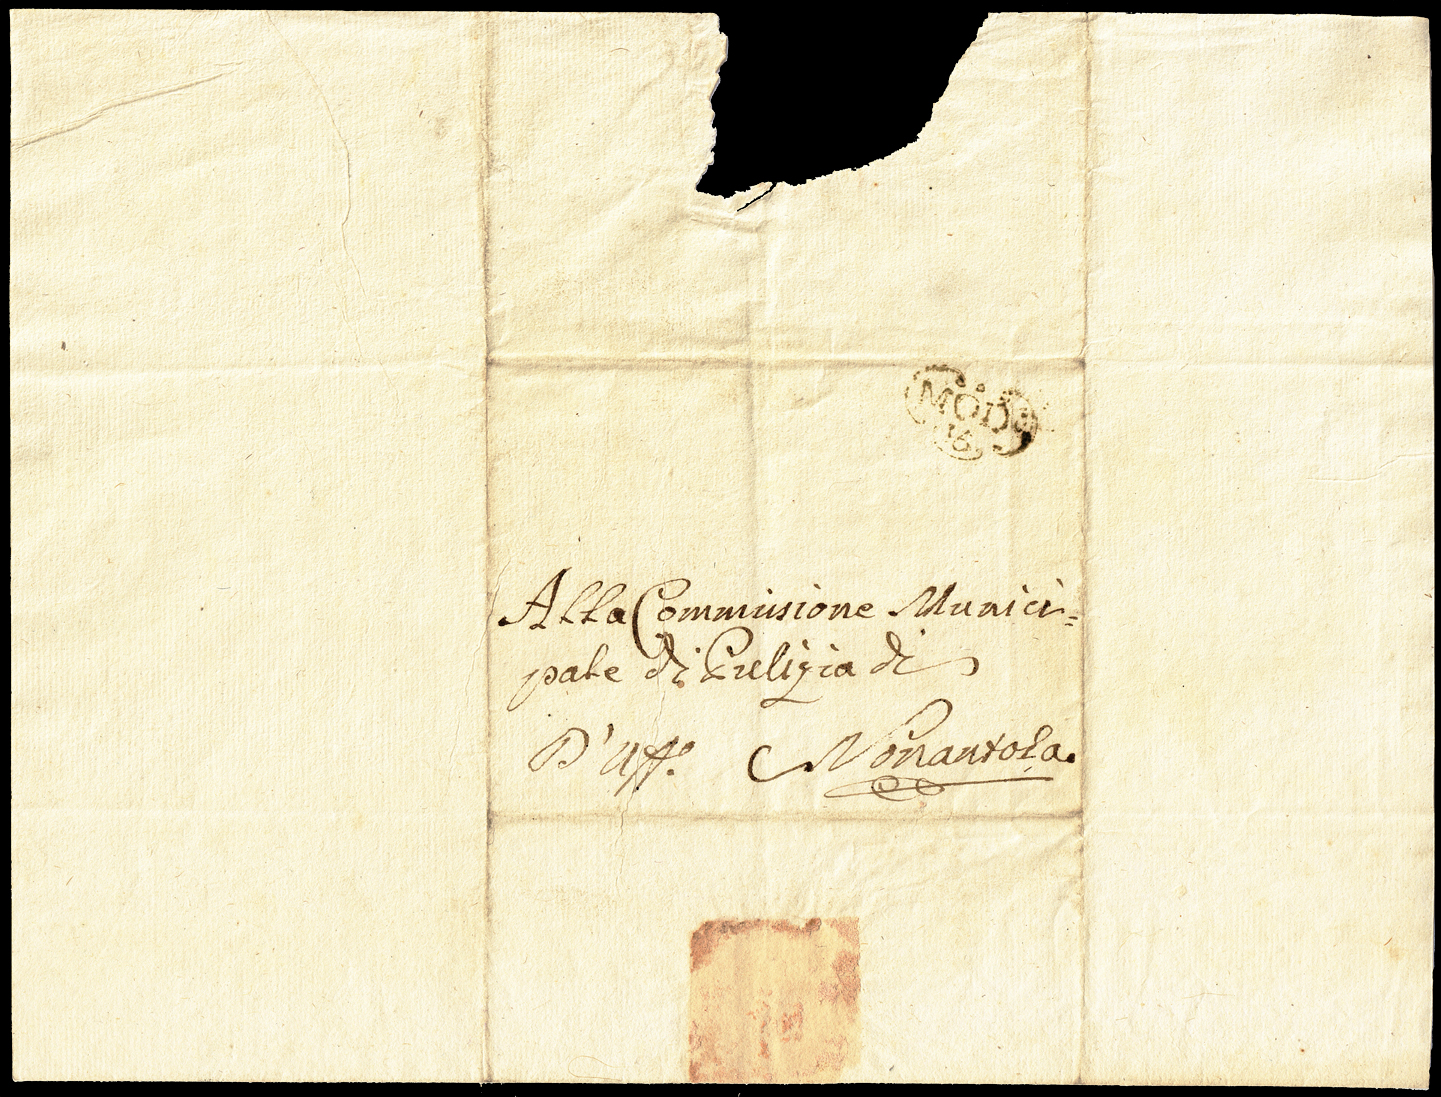 MOD
16
Alla Commissione Munici=
pale di Pulizia di
D'Uff.º Nonantola.